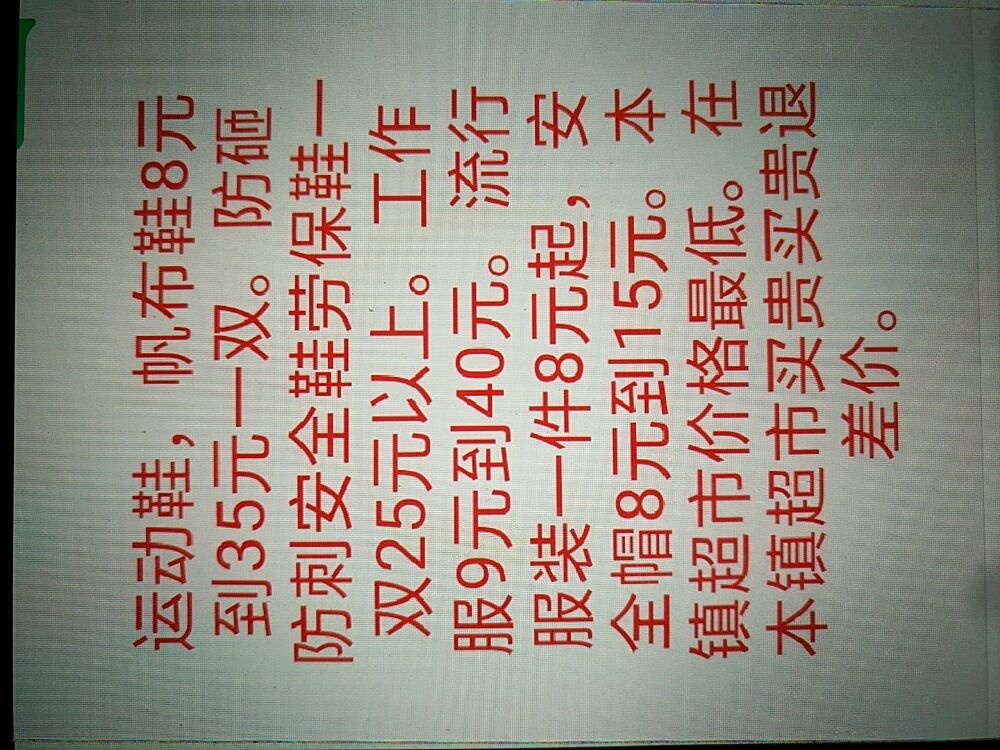 运动鞋，帆布鞋8元
到35元一双。防砸
防刺安全鞋劳保鞋一
双25元以上。工作
服9元到40元。流行
服装一件8元起，安
全帽8元到15元。本
镇超市价格最低。在
本镇超市买贵买贵退
差价。